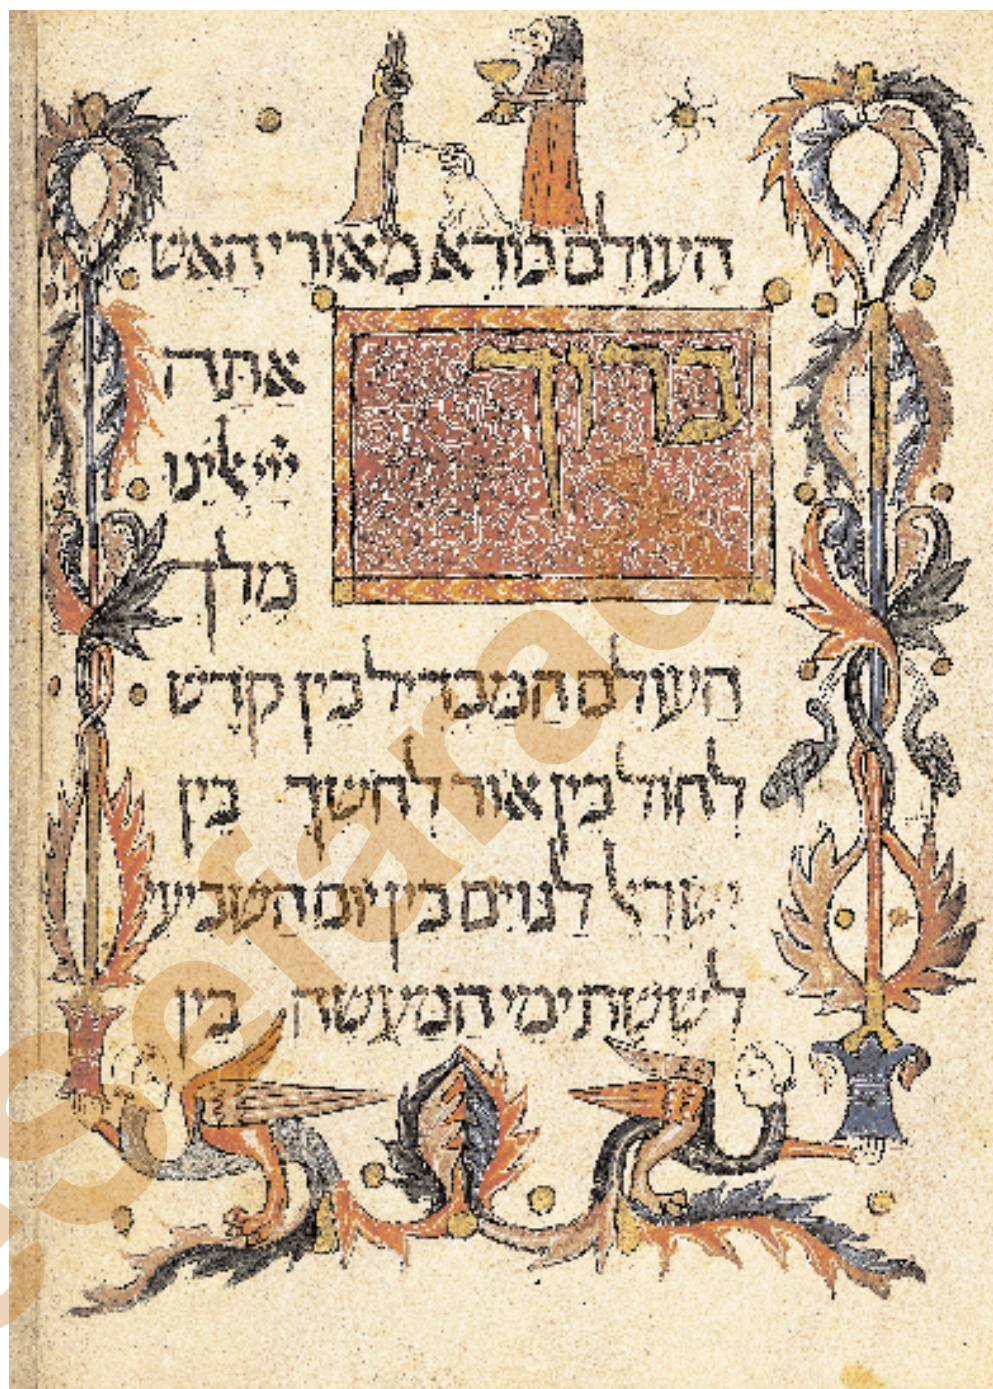 העולם בורא מאורי האש
ברוך אתה
ייי אלינו
מלך
העולם המבדיל בין קדש
לחול בין אור לחשך בין
ישראל לגוים בין יום השביעי
לששת ימי המעשה בין
eSefarad